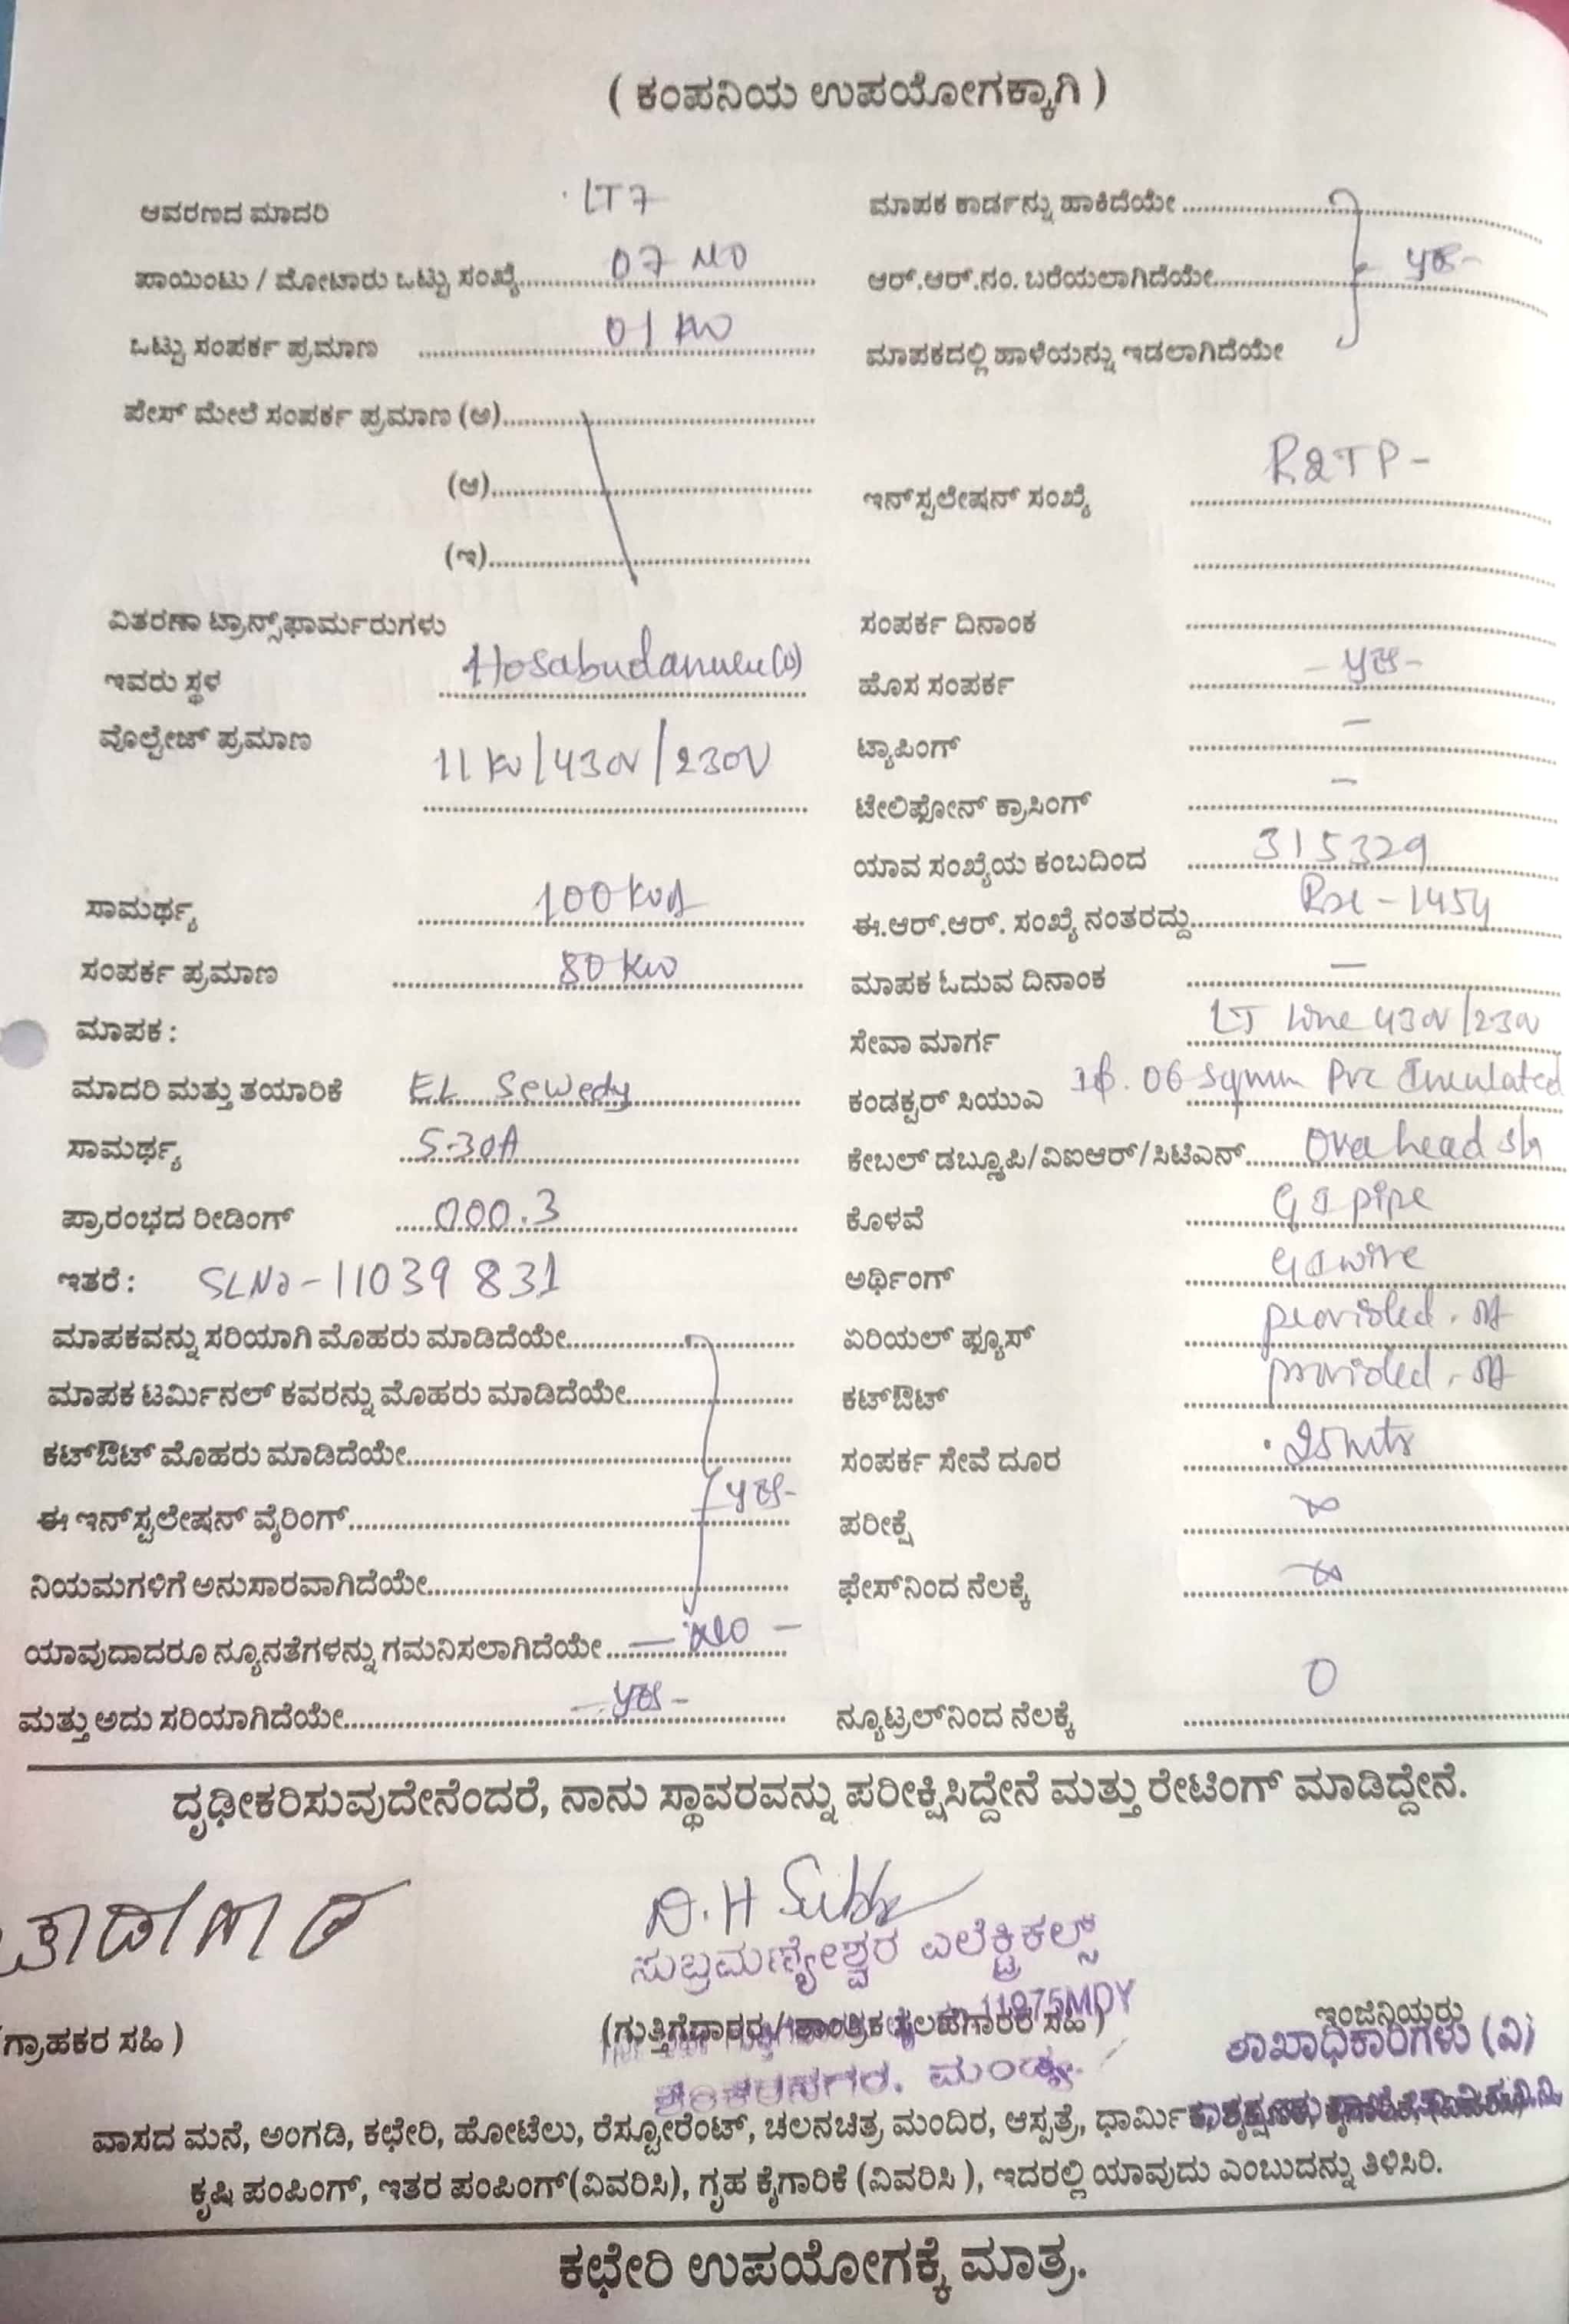 ( ಕಂಪನಿಯ ಉಪಯೋಗಕ್ಕಾಗಿ )
ಆವರಣದ ಮಾದರಿ LT7
ಪಾಯಿಂಟು / ಮೋಟಾರು ಒಟ್ಟು ಸಂಖ್ಯೆ 07 NO
ಒಟ್ಟು ಸಂಪರ್ಕ ಪ್ರಮಾಣ 01 KW
ಪೇಸ್ ಮೇಲೆ ಸಂಪರ್ಕ ಪ್ರಮಾಣ (ಅ)
(ಆ)
(ಇ)
ವಿತರಣಾ ಟ್ರಾನ್ಸ್‌ಫಾರ್ಮರುಗಳು
ಇವರು ಸ್ಥಳ
ವೊಲ್ಟೇಜ್ ಪ್ರಮಾಣ 11 KV/430V/230V
ಸಾಮರ್ಥ್ಯ 100 KVA
ಸಂಪರ್ಕ ಪ್ರಮಾಣ 80 KW
ಮಾಪಕ :
ಮಾದರಿ ಮತ್ತು ತಯಾರಿಕೆ EL Sewedy
ಸಾಮರ್ಥ್ಯ 5-30A
ಪ್ರಾರಂಭದ ರೀಡಿಂಗ್ 000.3
ಇತರೆ : SLNo-11039 831
ಮಾಪಕವನ್ನು ಸರಿಯಾಗಿ ಮೊಹರು ಮಾಡಿದೆಯೇ
ಮಾಪಕ ಟರ್ಮಿನಲ್ ಕವರನ್ನು ಮೊಹರು ಮಾಡಿದೆಯೇ
ಕಟ್‌ಔಟ್ ಮೊಹರು ಮಾಡಿದೆಯೇ
ಈ ಇನ್‌ಸ್ಟಲೇಷನ್ ವೈರಿಂಗ್ yes-
ನಿಯಮಗಳಿಗೆ ಅನುಸಾರವಾಗಿದೆಯೇ
ಯಾವುದಾದರೂ ನ್ಯೂನತೆಗಳನ್ನು ಗಮನಿಸಲಾಗಿದೆಯೇ - NO -
ಮತ್ತು ಅದು ಸರಿಯಾಗಿದೆಯೇ - yes -
ಮಾಪಕ ಕಾರ್ಡನ್ನು ಹಾಕಿದೆಯೇ
ಆರ್.ಆರ್.ನಂ. ಬರೆಯಲಾಗಿದೆಯೇ yes-
ಮಾಪಕದಲ್ಲಿ ಹಾಳೆಯನ್ನು ಇಡಲಾಗಿದೆಯೇ
ಇನ್‌ಸ್ಟಲೇಷನ್ ಸಂಖ್ಯೆ R2TP-
ಸಂಪರ್ಕ ದಿನಾಂಕ
ಹೊಸ ಸಂಪರ್ಕ - yes -
ಟ್ಯಾಪಿಂಗ್ -
ಟೇಲಿಫೋನ್ ಕ್ರಾಸಿಂಗ್ -
ಯಾವ ಸಂಖ್ಯೆಯ ಕಂಬದಿಂದ 315329
ಈ.ಆರ್.ಆರ್. ಸಂಖ್ಯೆ ನಂತರದ್ದು - 1454
ಮಾಪಕ ಓದುವ ದಿನಾಂಕ -
ಸೇವಾ ಮಾರ್ಗ LT Line 430V/230V
ಕಂಡಕ್ಟರ್ ಸಿಯುಎ 06 Sqmm PVC
ಕೇಬಲ್ ಡಬ್ಲೂಪಿ/ವಿಐಆರ್/ಸಿಟಿಎನ್ Over head
ಕೊಳವೆ GI pipe
ಅರ್ಥಿಂಗ್ GI wire
ಏರಿಯಲ್ ಫ್ಯೂಸ್ provided.
ಕಟ್‌ಔಟ್ provided.
ಸಂಪರ್ಕ ಸೇವೆ ದೂರ 25 mts
ಪರೀಕ್ಷೆ
ಫೇಸ್‌ನಿಂದ ನೆಲಕ್ಕೆ
ನ್ಯೂಟ್ರಲ್‌ನಿಂದ ನೆಲಕ್ಕೆ 0
ದೃಢೀಕರಿಸುವುದೇನೆಂದರೆ, ನಾನು ಸ್ಥಾವರವನ್ನು ಪರೀಕ್ಷಿಸಿದ್ದೇನೆ ಮತ್ತು ರೇಟಿಂಗ್ ಮಾಡಿದ್ದೇನೆ.
D.H
ಸುಬ್ರಮಣ್ಯೇಶ್ವರ ಎಲೆಕ್ಟ್ರಿಕಲ್ಸ್
11975MDY
ಗ್ರಾಹಕರ ಸಹಿ )
(ಗುತ್ತಿಗೆದಾರರು / ತಾಂತ್ರಿಕ ಸಲಹೆಗಾರರ ಸಹಿ )
ಇಂಜಿನಿಯರು
ಶಾಖಾಧಿಕಾರಿಗಳು (ವಿ)
ಮಂಡ್ಯ.
ವಾಸದ ಮನೆ, ಅಂಗಡಿ, ಕಛೇರಿ, ಹೋಟೆಲು, ರೆಸ್ಟೋರೆಂಟ್, ಚಲನಚಿತ್ರ ಮಂದಿರ, ಆಸ್ಪತ್ರೆ,
ಕೃಷಿ ಪಂಪಿಂಗ್, ಇತರ ಪಂಪಿಂಗ್(ವಿವರಿಸಿ), ಗೃಹ ಕೈಗಾರಿಕೆ (ವಿವರಿಸಿ ), ಇದರಲ್ಲಿ ಯಾವುದು ಎಂಬುದನ್ನು ತಿಳಿಸಿರಿ.
ಕಛೇರಿ ಉಪಯೋಗಕ್ಕೆ ಮಾತ್ರ.